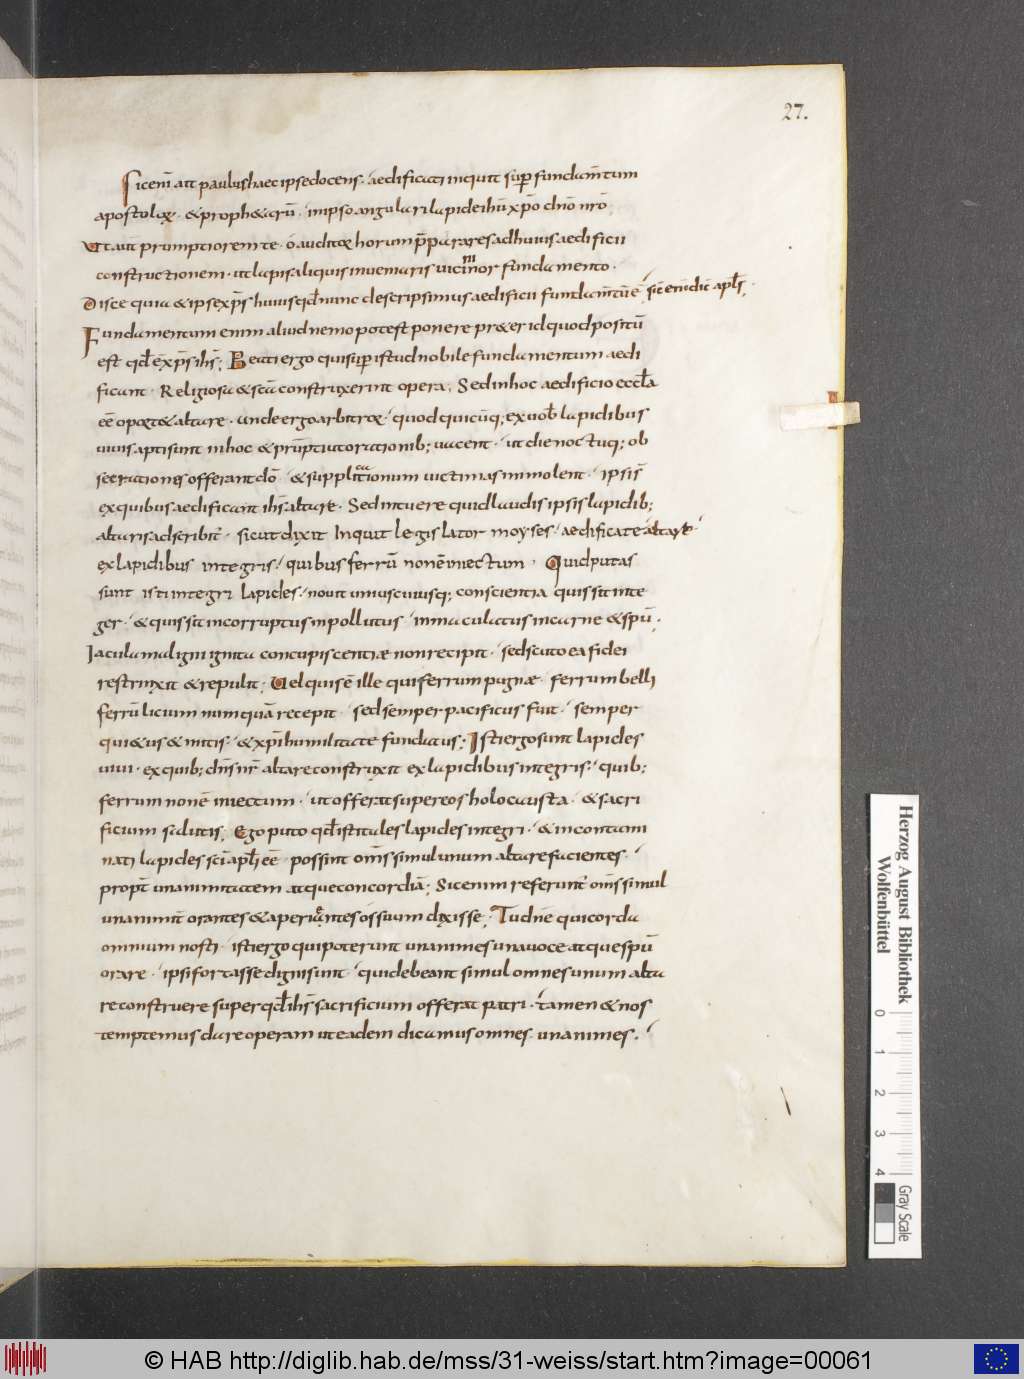 27.
Sicenī ait paulushaecipsedocens· aedificati inquit sup̄ fundam̄tum
apostolor̄· &proph&arū· inipsoangularilapideihū xp̄o dn̄o nr̄o
Utaut̄ prumptioremte· oauditor̄ horum p̄pararesadhuiusaedificii
constructionem· utlapisaliquisinueniarisuicinior fundamento·
Disce quia &ipsexp̄s huiusqd̄nunc descripsimusaedificii fundam̄tūē sic enīdic̄ apls̄
Fundamentum enim aliudnemopotestponere pr&er idquodpositū
est qd̄ēxp̄s ihs̄; Beatiergo quisup̄ istudnobilefundamentum aedi
ficant· Religiosa &sc̄a construxerint opera; Sedinhoc aedificio eccl̄a
eē oport& altare· undeergoarbitror· quod quicūq; exuob̄ lapidibus
uiuis aptisunt inhoc &prūptiutorationib; uacent· ut die noctuq; ob
secrationes offerantdō &supplicationum uictimasimmolent· ipsis̄
exquibusaedificant ihs̄ altare· Sedintuere quidlaudis ipsis lapidib;
altarisadscribit̄· sicut dixit Inquit legislator moyses· aedificate altare
exlapidibus integris· quibusferrū nonēiniectum· Quidputas
sunt istiintegri lapides· nouit uniuscuiusq; conscientia quissitinte
ger· &quissitincorruptusinpollutus inmaculatusincarne &spū·
Jaculamaligniignita concupiscentiae nonrecipit· sedscutoeafidei
restrinxit &repulit· Uelquisē ille quiferrum pugnae· ferrumbelli
ferrūlicium numquā recepit sedsemperpacificus fuit· semper
qui&us &mitis· &xp̄ihumilitate fundatus; Istiergosunt lapides
uiui· exquib; dn̄snr̄ altareconstruxit exlapidibusintegris· quib;
ferrum nonē iniectum· utofferatsupereosholocausta· &sacri
ficium salutis; Ego puto qd̄istitaleslapidesintegri· &incontami
nati lapides sc̄i apl̄i eē possint om̄s simulunum altarefacientes·
propt̄ unanimitatem atqueconcordiā; Sicenim referunt̄ om̄s simul
unanimit̄ orantes &aperientes ossuum dixisse; Tudn̄e quicorda
omnium nosti istiergoquipoterunt unanimesunauoce atquespū
orare· ipsifortassedignisunt quidebeant simul omnesunum alta
reconstruere superqd̄ihs̄ sacrificium offerat patri· tamen &nos
temptemusdareoperam uteadem dicamusomnes unanimes·
Herzog August Bibliothek
Wolfenbüttel
0 1 2 3 4
Gray Scale
© HAB http://diglib.hab.de/mss/31-weiss/start.htm?image=00061